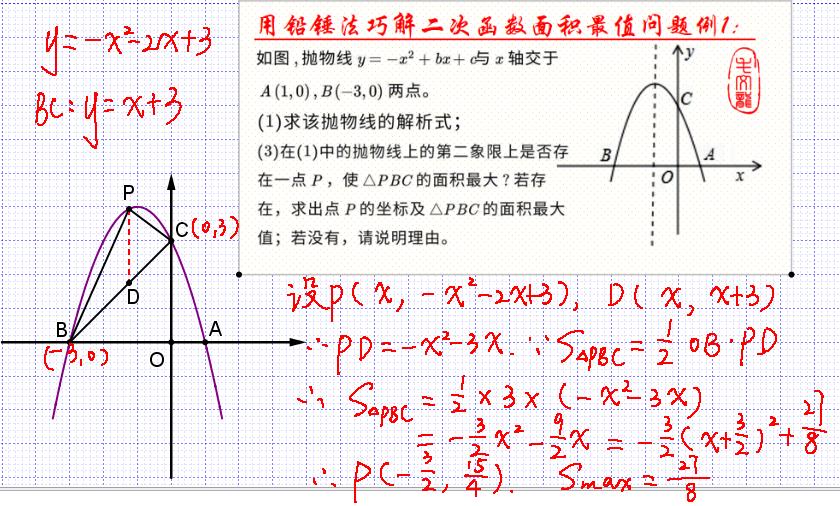 y=-x²-2x+3
BC:y=x+3
用铅锤法巧解二次函数面积最值问题例1:
如图,抛物线 y=-x²+bx+c与 x 轴交于
A(1,0),B(-3,0)两点。
(1)求该抛物线的解析式;
(3)在(1)中的抛物线上的第二象限上是否存
在一点 P ,使 △PBC 的面积最大?若存
在,求出点 P 的坐标及 △PBC 的面积最大
值;若没有,请说明理由。
y
C
B
A
O
x
P
C(0,3)
D
B
A
(-3,0)
O
设P(x, -x²-2x+3), D(x, x+3)
∴PD=-x²-3x. ∵S△PBC=1/2 OB·PD
∴ S△PBC=1/2×3×(-x²-3x)
=-3/2x²-9/2x=-3/2(x+3/2)²+27/8
∴P(-3/2, 15/4). Smax=27/8